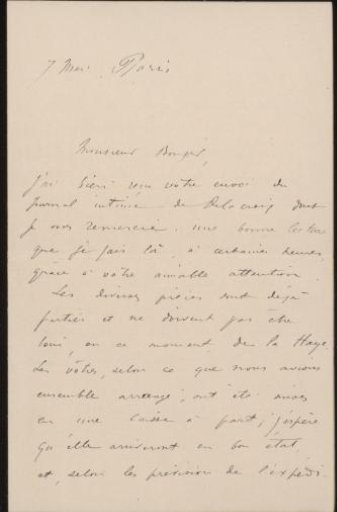 7 Mai Paris
Monsieur Bonger,
J'ai bien reçu votre envoi du
journal intime de Delacroix dont
je vous remercie. une bonne lecture
que je fais là, à certaines heures,
grace à vôtre aimable attention.
Les diverses pièces sont déjà
parties et ne doivent pas être
loin, en ce moment, de la Haye.
Les vôtres, selon ce que nous avions
ensemble arrangé, ont été mises
en une caisse à part; j'espère
qu'elle arriveront en bon état,
et, selon les prévision de l'expédi-